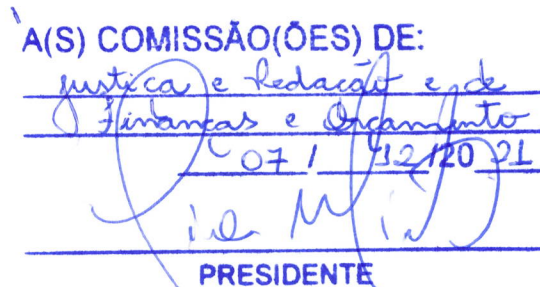 À(S) COMISSÃO(ÕES) DE:
Justiça e Redação e de
Finanças e Orçamento
07 / 12 / 20 21
PRESIDENTE